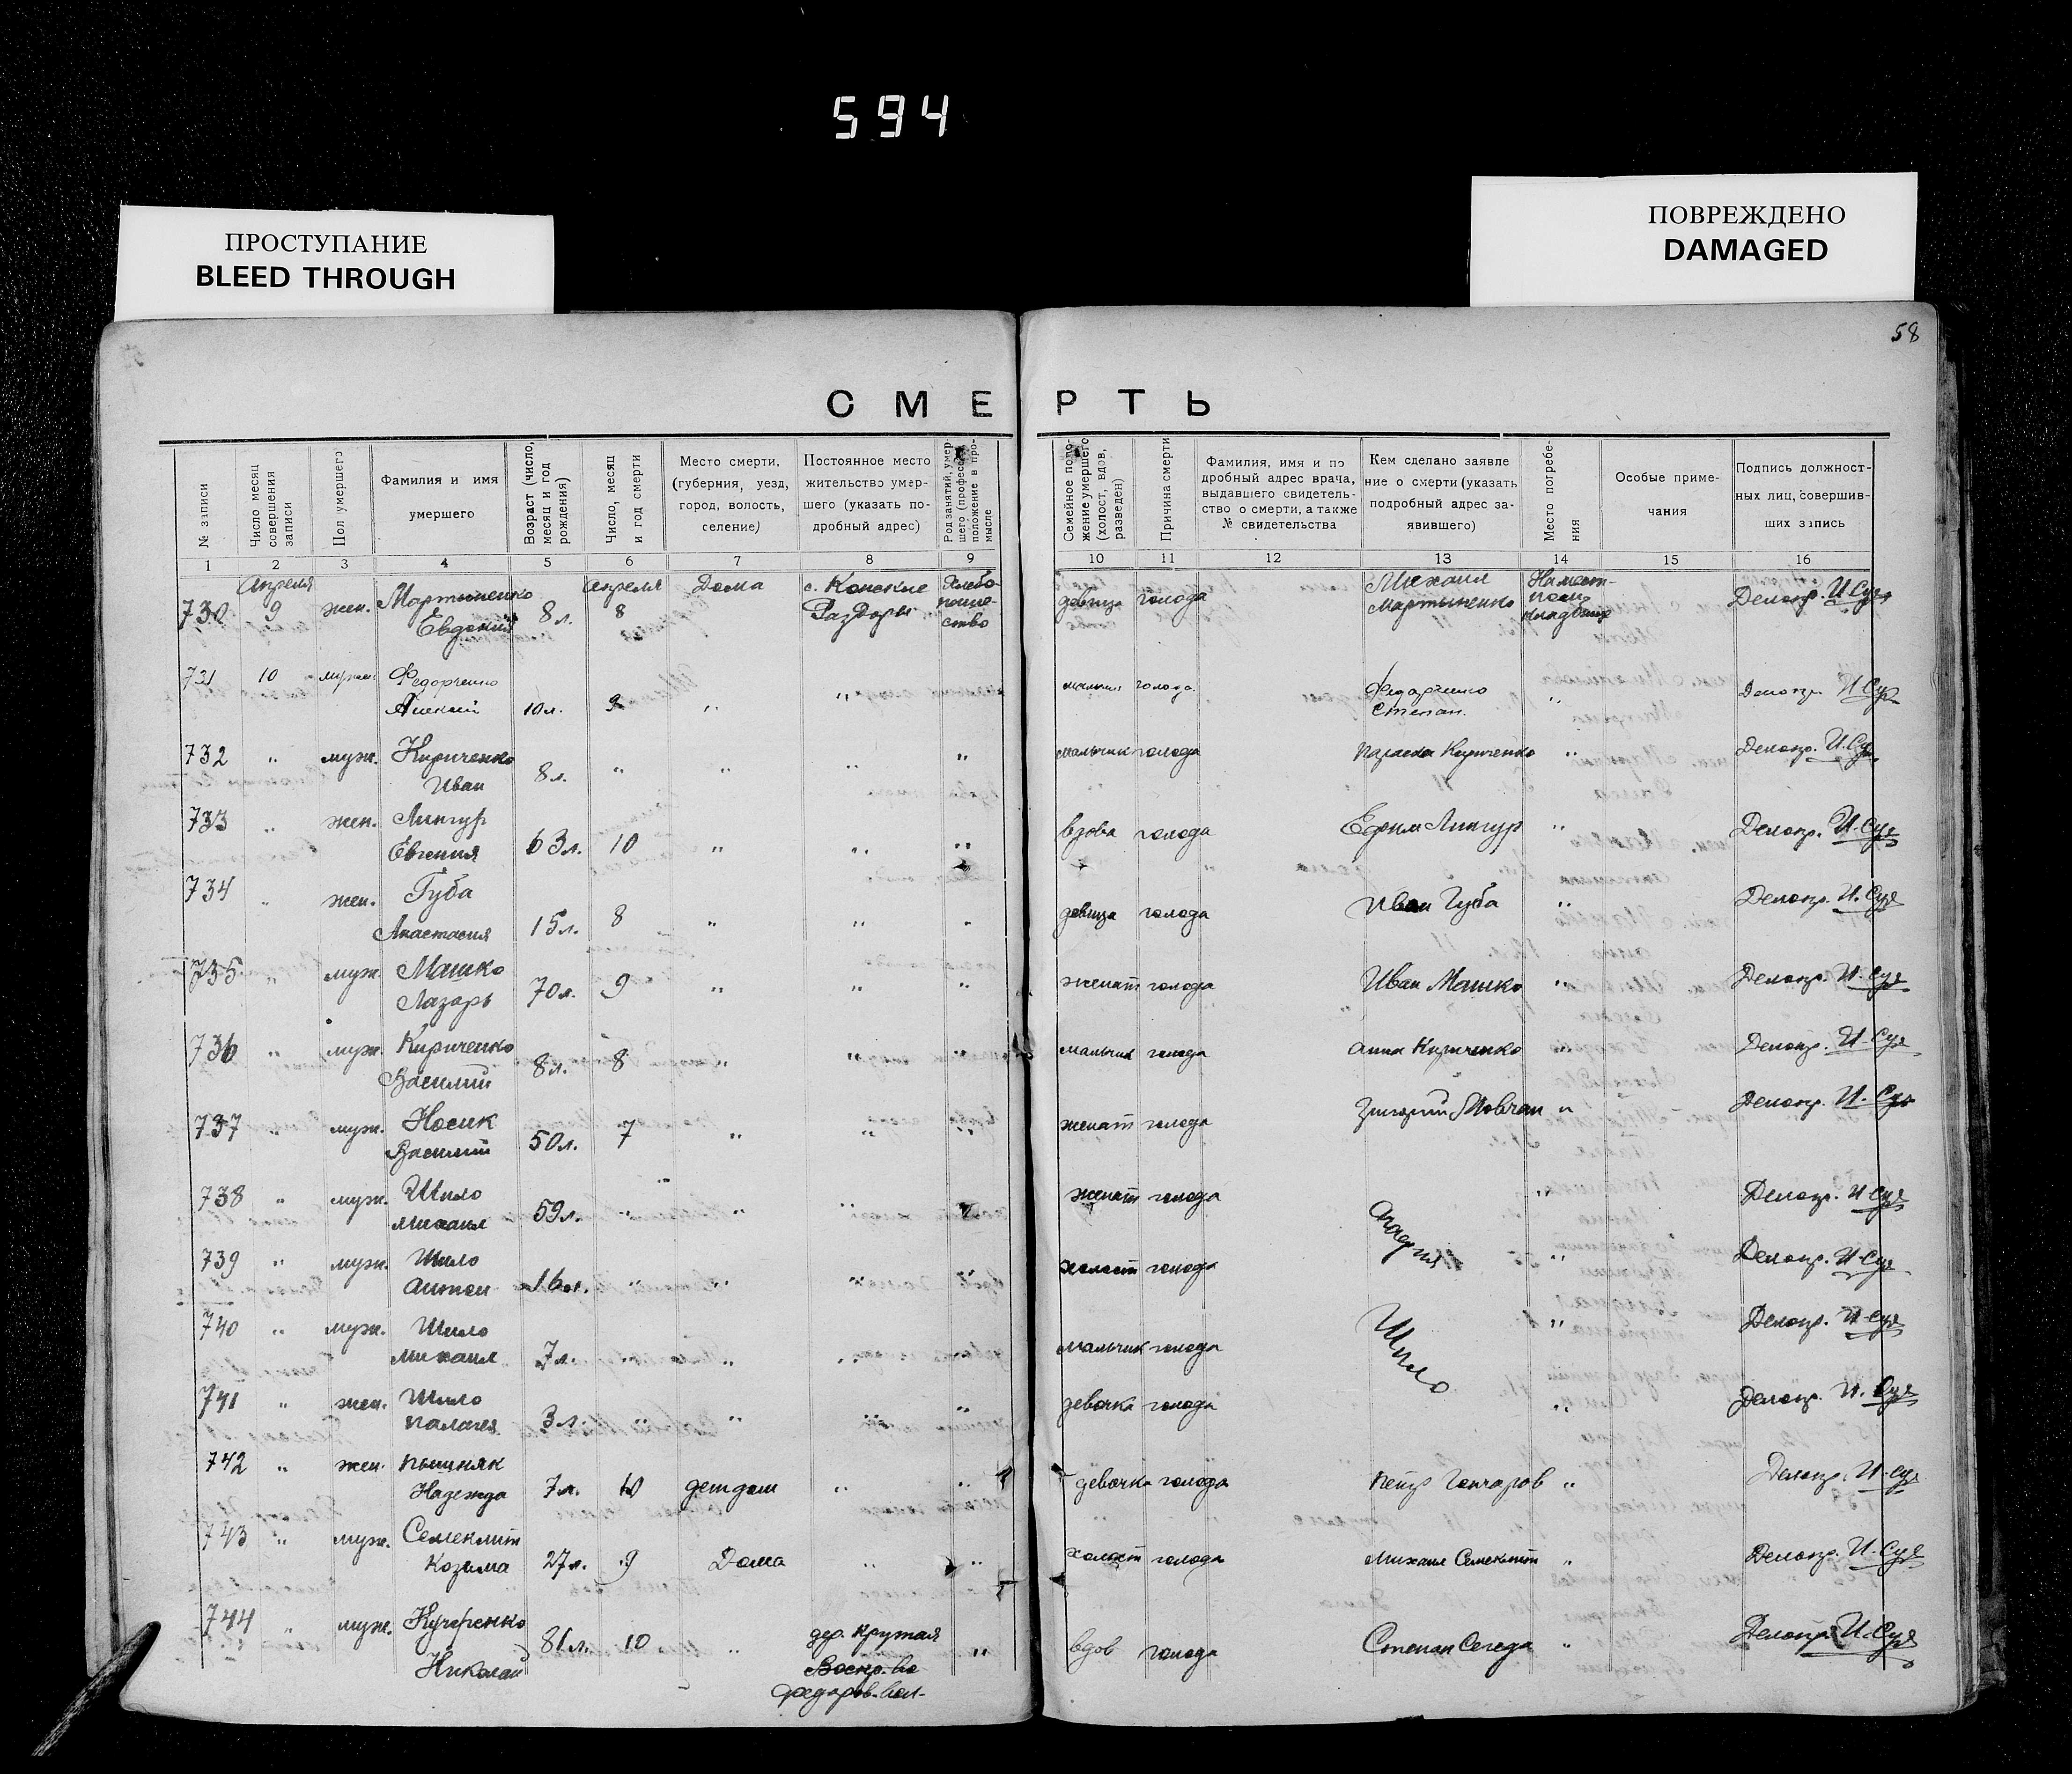 594
ПРОСТУПАНИЕ
BLEED THROUGH
ПОВРЕЖДЕНО
DAMAGED
58
СМЕРТЬ
№ записи
Число месяц совершения записи
Пол умершего
Фамилия и имя умершего
Возраст (число, месяц и год рождения)
Число, месяц и год смерти
Место смерти, (губерния, уезд, город, волость, селение)
Постоянное место жительство умершего (указать подробный адрес)
Род занятий, умершего (профес. положение в промысле
Семейное положение умершего (холост, вдов, разведен)
Причина смерти
Фамилия, имя и подробный адрес врача, выдавшего свидетельство о смерти, а также № свидетельства
Кем сделано заявление о смерти (указать подробный адрес заявившего)
Место погребения
Особые примечания
Подпись должностных лиц, совершивших запись
1 2 3 4 5 6 7 8 9 10 11 12 13 14 15 16
730 Апреля 9 жен. Мартыненко Евдокия 8 л. Апреля 8 Дома с. Конские Раздоры Хлебопашество девица голода Михаил Мартыненко На мест. кладбище Делопр. И. Суя
731 10 муж. Федорченко Алексей 10 л. 9 " " мальчик голода Федорченко Степан. " Делопр. И. Суя
732 " муж. Кириченко Иван 8 л. " " " " мальчик голода Кириченко " Делопр. И. Суя
733 " жен. Лингур Евгения 63 л. 10 " " " вдова голода Лингур " Делопр. И. Суя
734 " жен. Губа Анастасия 15 л. 8 " " " девица голода Иван Губа " Делопр. И. Суя
735 " муж. Машко Лазарь 70 л. 9 " " " женат голода Иван Машко " Делопр. И. Суя
736 " муж. Кириченко Василий 8 л. 8 " " " мальчик голода Анна Кириченко " Делопр. И. Суя
737 " муж. Носик Василий 50 л. 7 " " " женат голода Григорий Мовчан " Делопр. И. Суя
738 " муж. Шило Михаил 59 л. " " " " женат голода " Делопр. И. Суя
739 " муж. Шило Антон 16 л. " " " " холост голода " Делопр. И. Суя
Шило
740 " муж. Шило Михаил 7 л. " " " " мальчик голода " Делопр. И. Суя
741 " жен. Шило Палагея 3 л. " " " " девочка голода " Делопр. И. Суя
742 " жен. Пышняк Надежда 7 л. 10 детдом " " девочка голода Петр Гончаров " Делопр. И. Суя
743 " муж. Козьма 27 л. 9 Дома " " холост голода Михаил " Делопр. И. Суя
744 " муж. Кучеренко Николай 81 л. 10 " дер. Крутая Федоров. вол. " вдов голода Степан Сегеда " Делопр. И. Суя